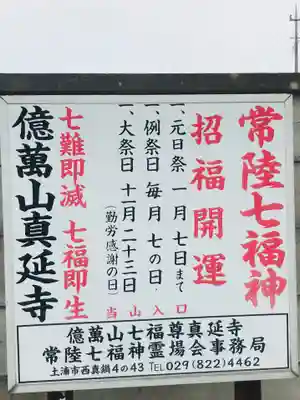 常陸七福神
招福開運
一、元日祭 一月 七日まで
一、例祭日 毎月 七の日
一、大祭日 十一月 二十三日
(勤労感謝の日)
当山入口
七難即滅 七福即生
億萬山真延寺
億萬山七福尊真延寺
常陸七福神霊場会事務局
土浦市西真鍋4の43 TEL029(822)4462